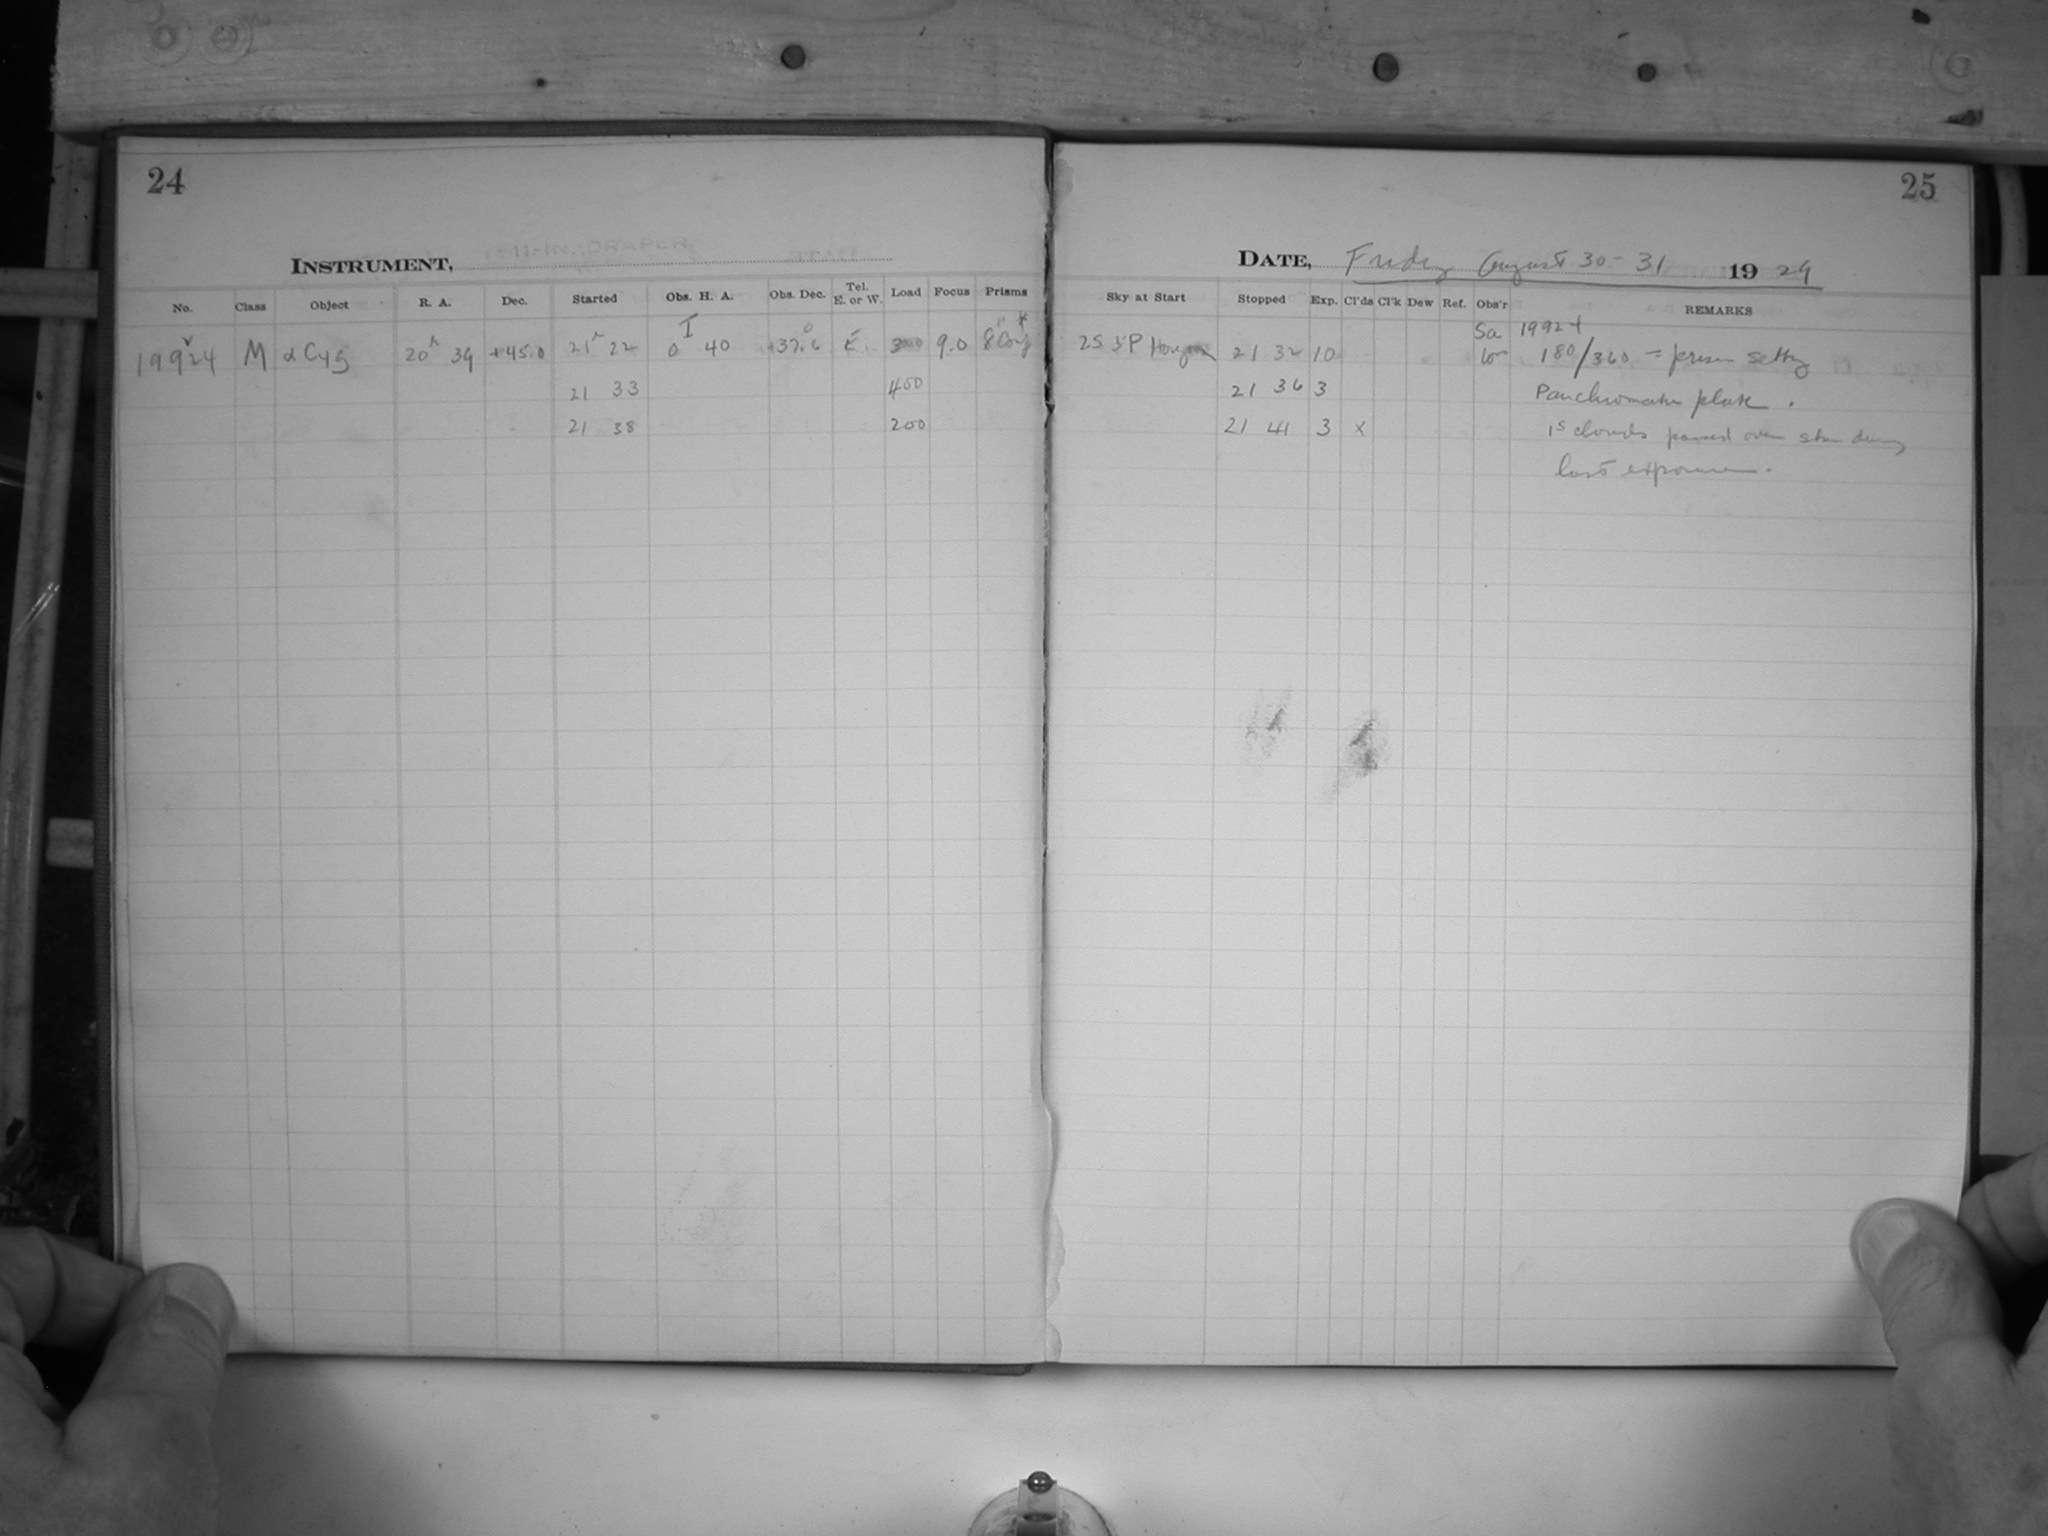 24
25
INSTRUMENT, 11-IN. DRAPER
DATE, Friday August 30-31 1929
No. Class Object R. A. Dec. Started Obs. H. A. Obs. Dec. Tel. E. or W. Load Focus Prisms Sky at Start Stopped Exp. Cl'ds Cl'k Dew Ref. Obs'r REMARKS
19924 M α Cyg 20h 39 +45.0 21h 22 0 40 E. 300 9.0 21 32 10 Sa 19924
180/360 = prism setting
21 33 400 21 36 3 Panchromatic plate.
21 38 200 21 41 3 x clouds passed over star during
last exposure.